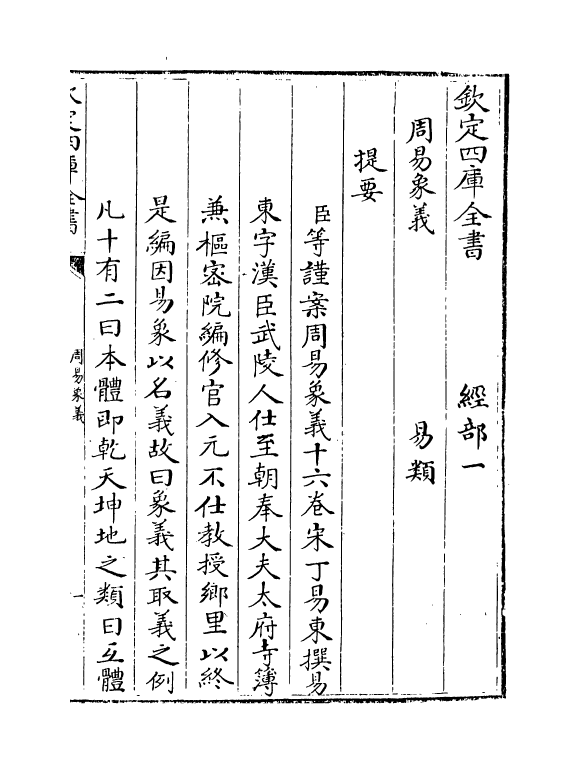 欽定四庫全書　經部一
周易象義　易類
提要
臣等謹案周易象義十六卷宋丁易東撰易
東字漢臣武陵人仕至朝奉大夫太府寺簿
兼樞宻院編修官入元不仕教授鄉里以終
是編因易象以名義故曰象義其取義之例
凡十有二曰本體即乾天坤地之類曰互體
欽定四庫全書
周易象義
一